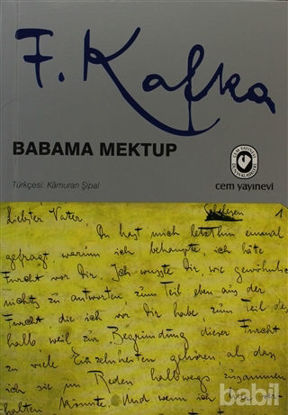 F. Kafka
BABAMA MEKTUP
Türkçesi: Kâmuran Şipal
CEM YAYINEVİ
cem yayınevi
Schelesen
1
Liebster Vater,
Du hast mich letzthin einmal
gefragt, warum ich behaupte, ich hätte
Furcht vor Dir. Ich wusste Dir, wie gewöhnlich
nichts zu antworten zum Teil eben aus der
Furcht die ich vor Dir habe zum Teil des
halb weil zur Begründung dieser Furcht
zu viele Einzelnheiten gehören als dass
ich sie im Reden halbwegs zusammen
halten könnte. Und wenn ich
babil